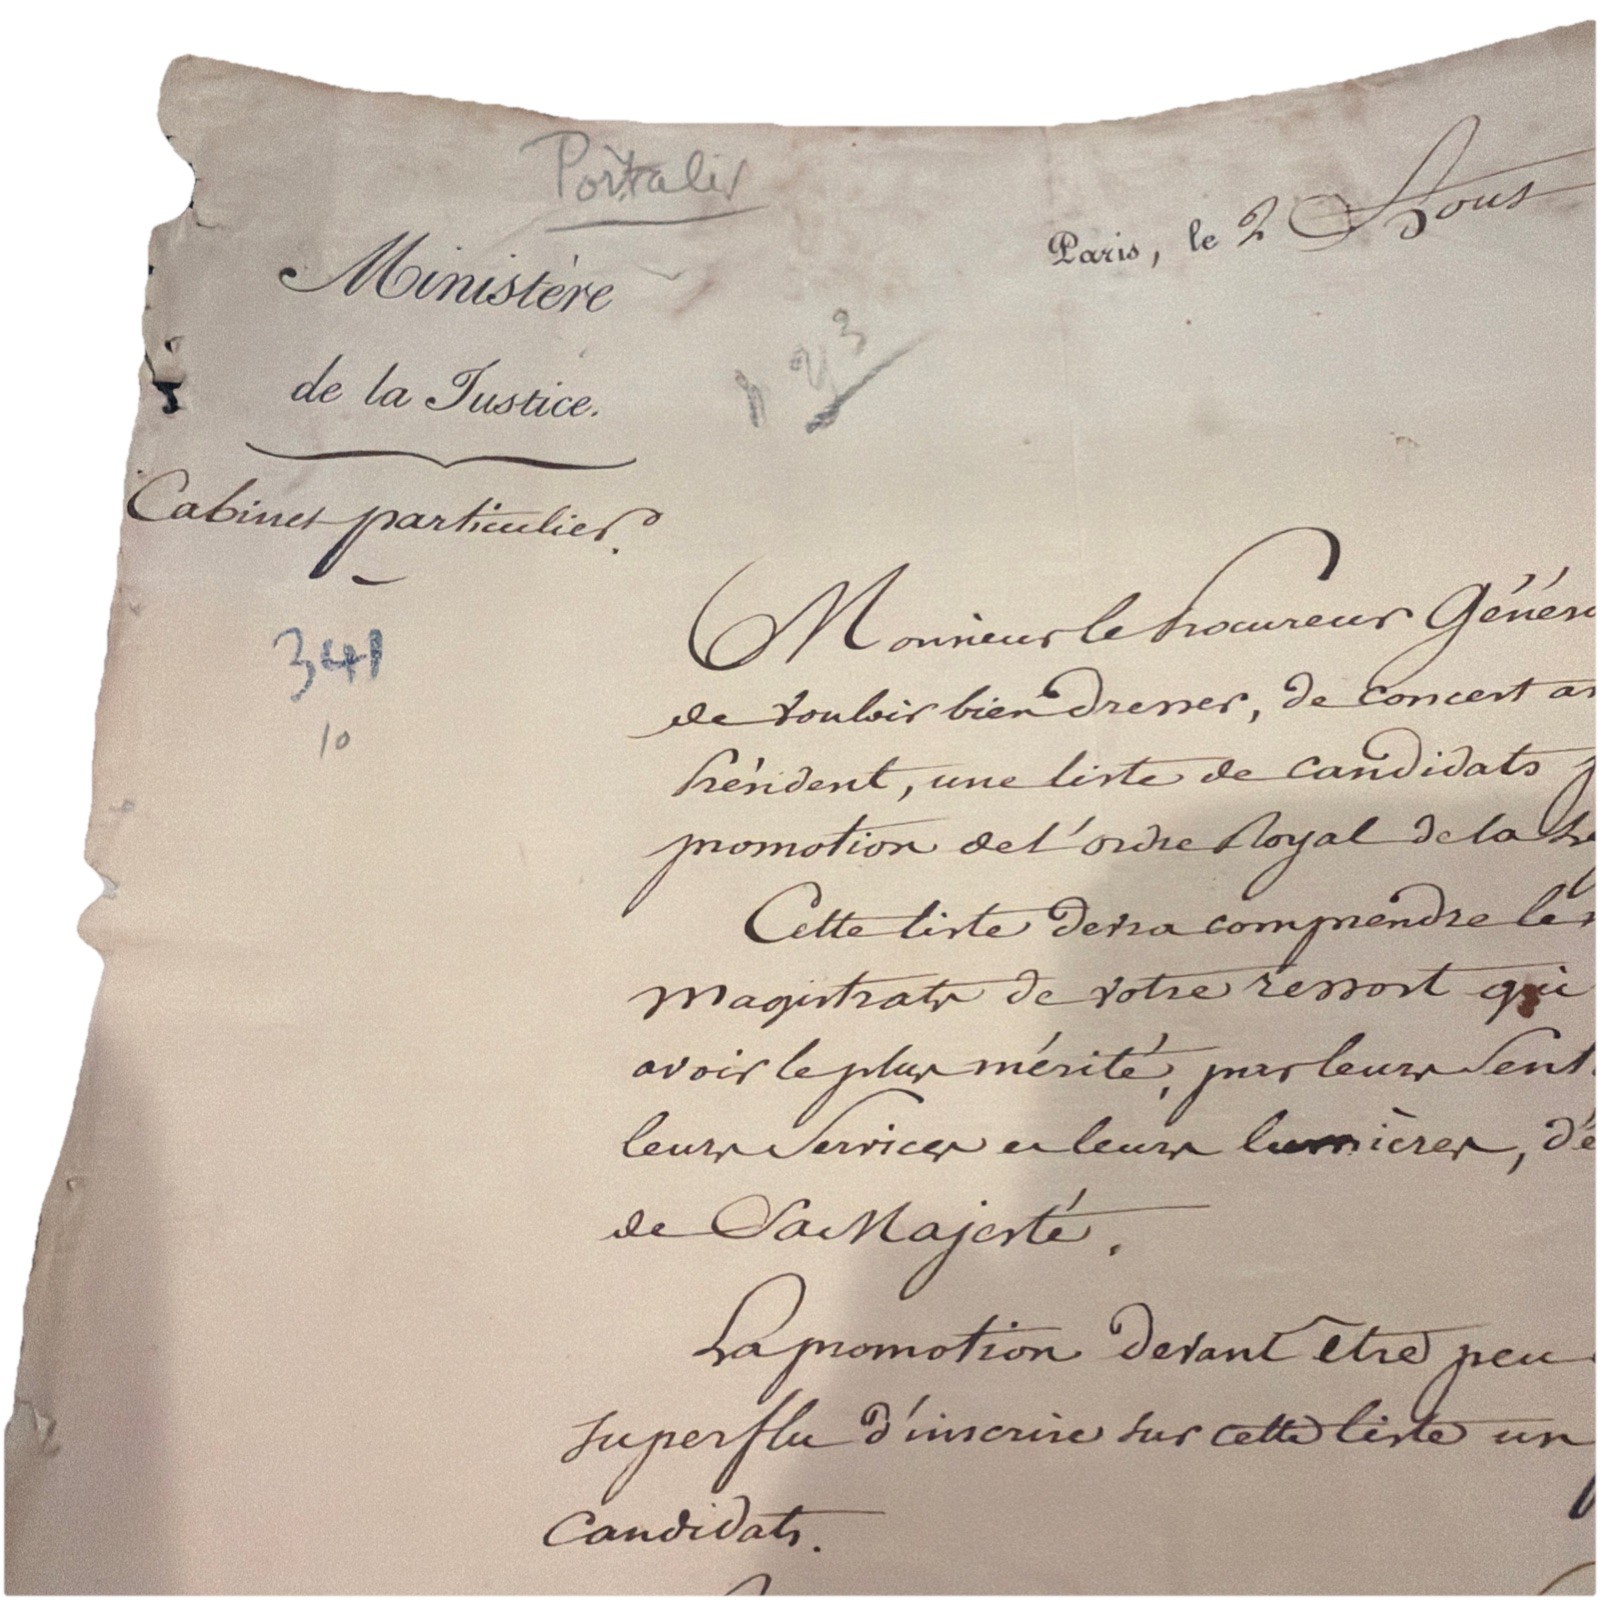 Portalis
Paris, le 2 Aout
Ministère
de la Justice.
Cabinet particulier.
341
10
Monsieur le Procureur Génér
de vouloir bien dresser, de concert av
Président, une liste de candidats p
promotion de l'ordre Royal de la Lé
Cette liste devra comprendre les
magistrats de votre ressort qui
avoir le plus mérité, par leurs sent
leurs services et leurs lumières, d'ê
de Sa Majesté.
La promotion devant être peu
superflu d'inscrire sur cette liste un
candidats.